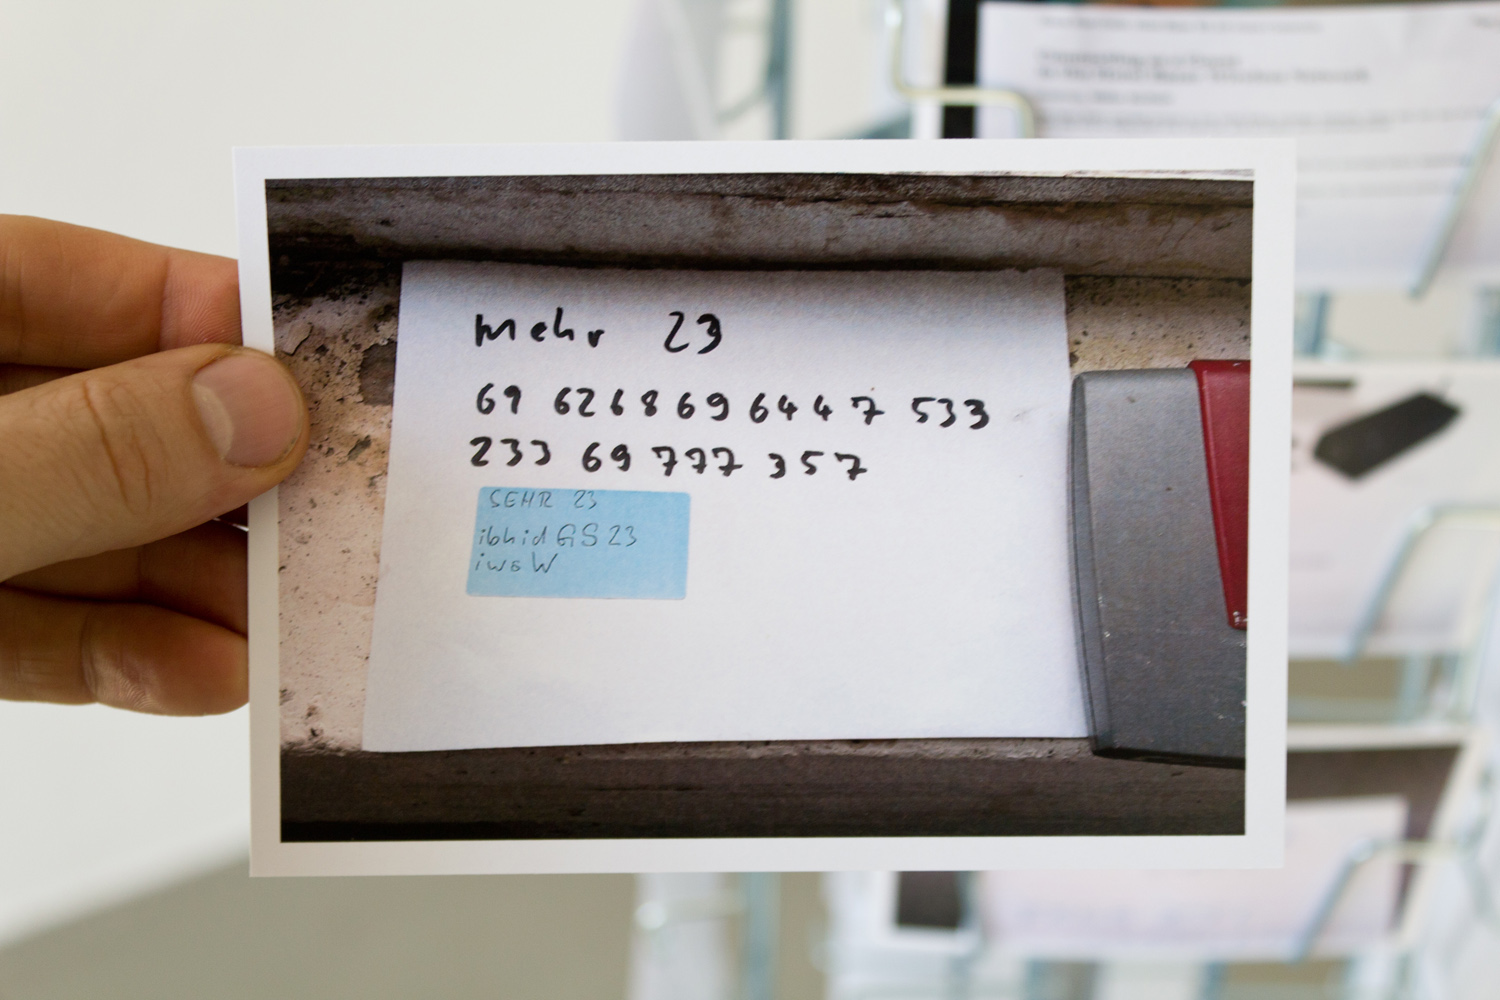 mehr 23
69 6268696447 533
233 69 777 357
SEHR 23
ibhid GS 23
iwoW